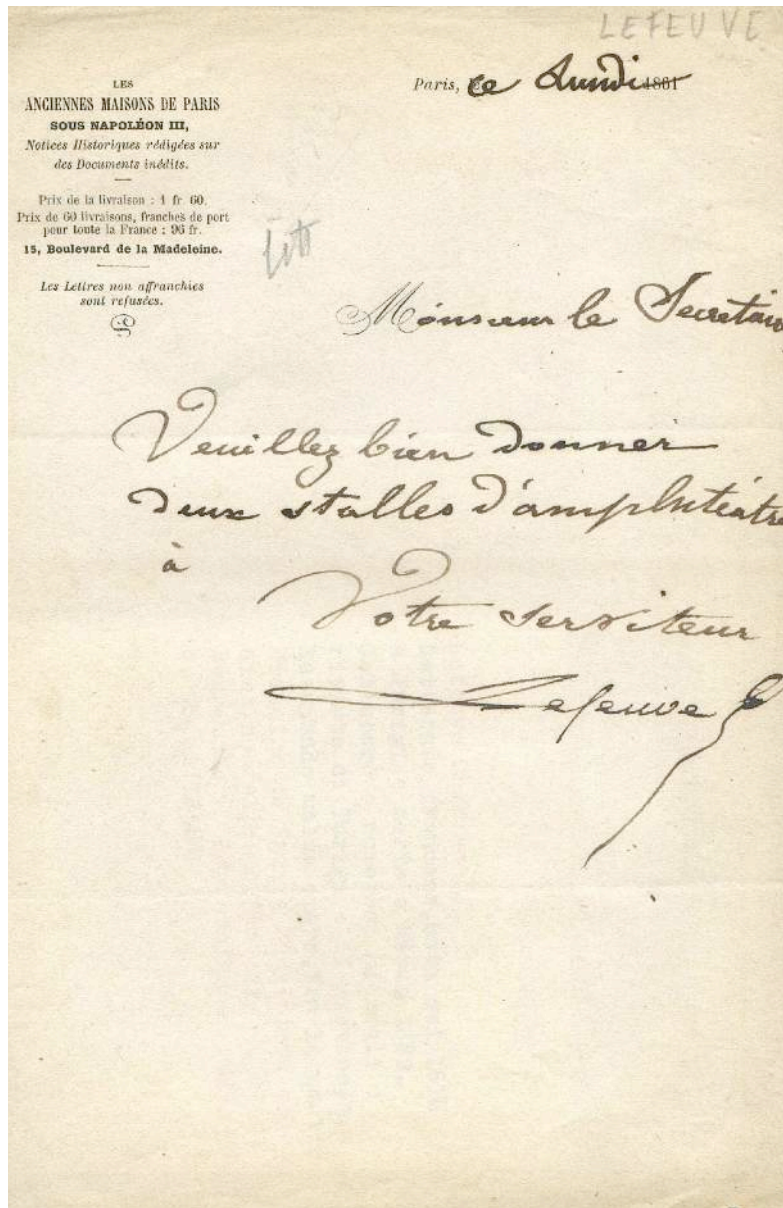 LEFEUVE
LES
ANCIENNES MAISONS DE PARIS
SOUS NAPOLÉON III,
Notices Historiques rédigées sur
des Documents inédits.
Prix de la livraison : 1 fr 60.
Prix de 60 livraisons, franches de port
pour toute la France : 96 fr.
15, Boulevard de la Madeleine.
Les Lettres non affranchies
sont refusées.
Paris, ce Lundi 1861
Monsieur le Secretaire
Veuillez bien donner
deux stalles d'amphitéatre
à
Votre serviteur
Lefeuve